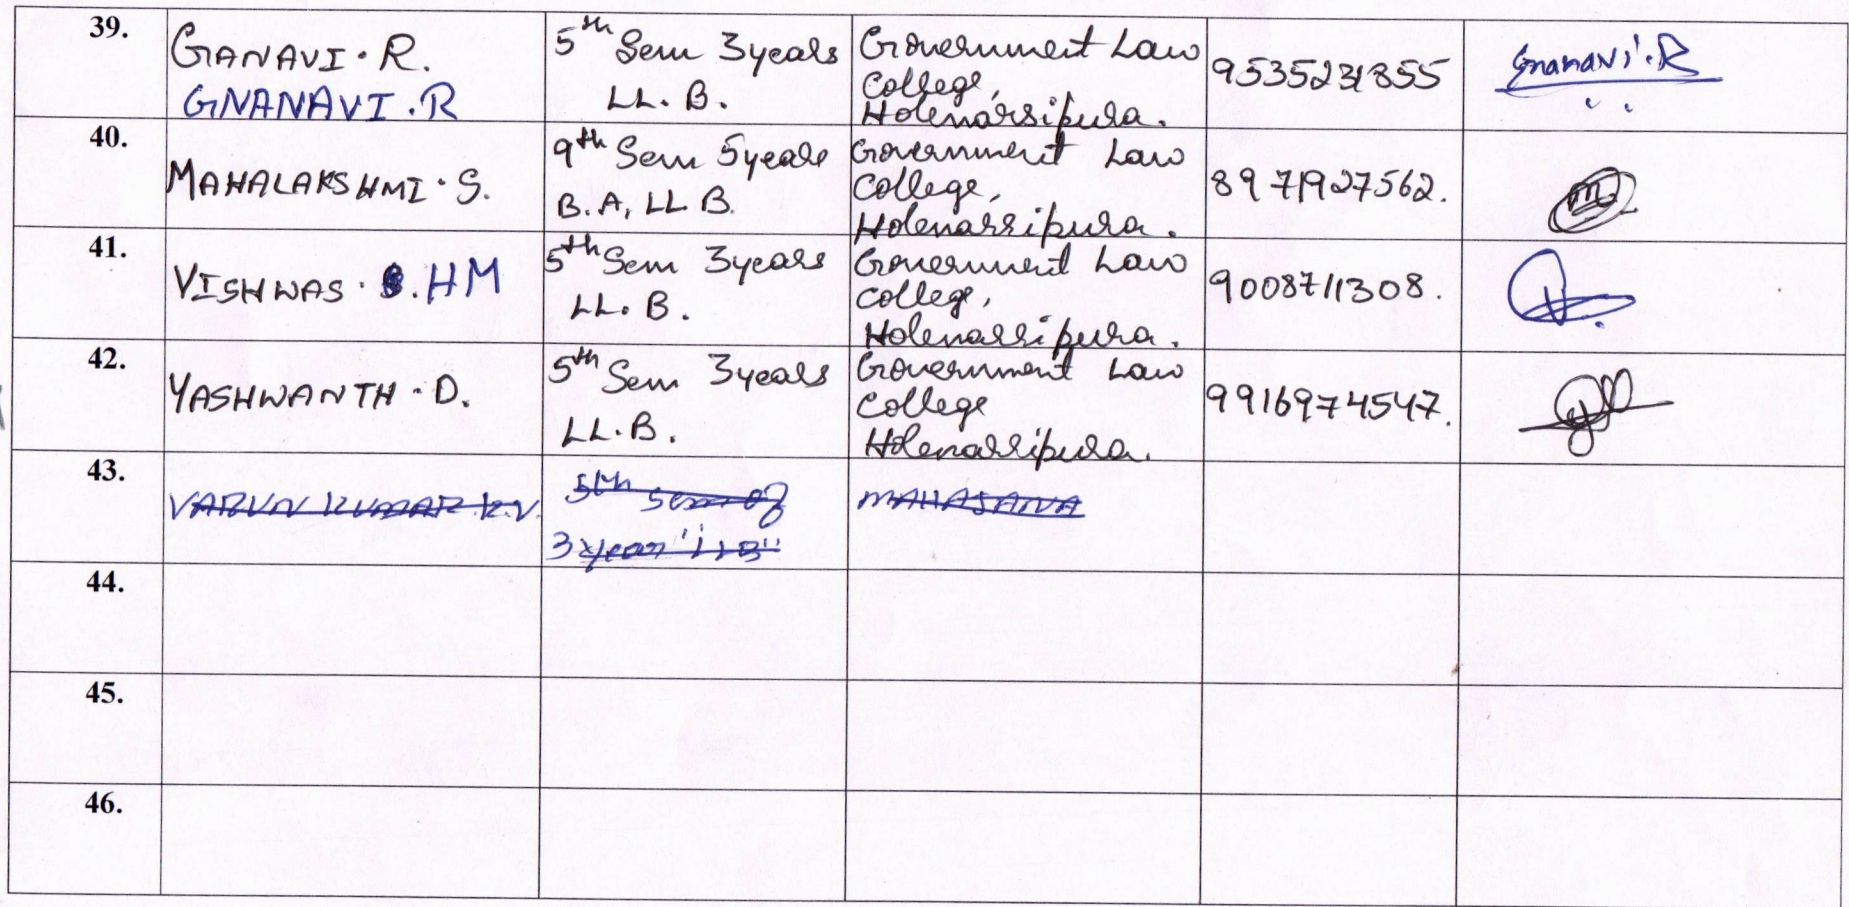 39.
GANAVI. R.
GNANAVI. R
5th Sem 3years
LL. B.
Government Law
College,
Holenarsipura.
9535231855
Gnanavi. R
40.
MAHALAKSHMI. S.
9th Sem 5years
B.A, LL.B.
Government Law
College,
Holenarsipura.
8971927562.
41.
VISHWAS. HM
5th Sem 3years
LL. B.
Government Law
College,
Holenarsipura.
9008711308.
42.
YASHWANTH. D.
5th Sem 3years
LL.B.
Government Law
College
Holenarsipura.
9916974547.
43.
VARUN KUMAR K.V.
5th sem of
3 year "LLB"
MAHASANA
44.
45.
46.